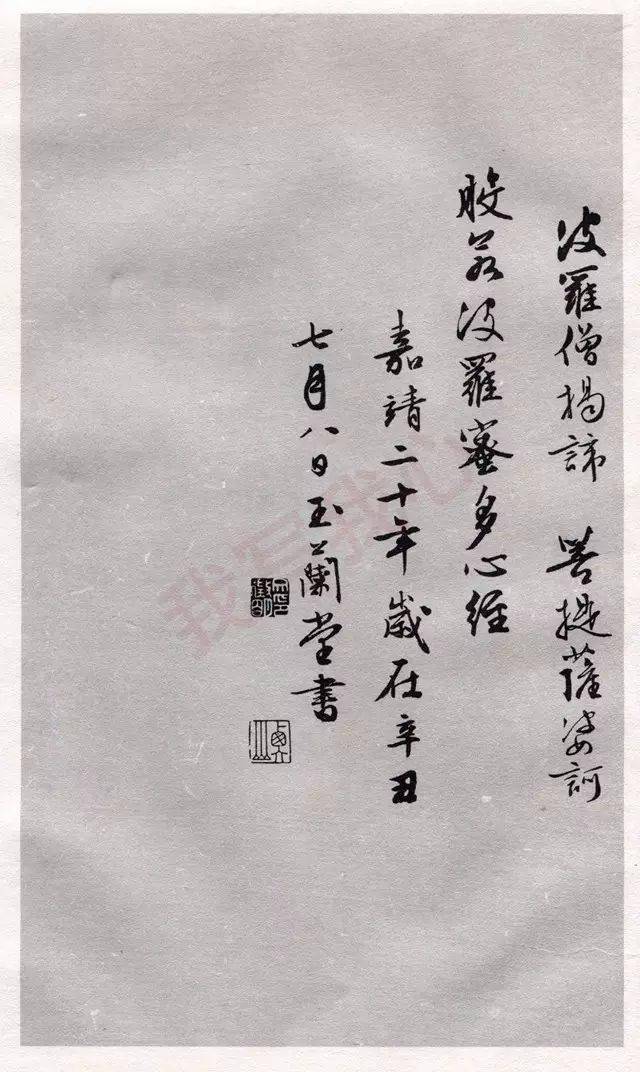 波羅僧揭諦　菩提薩婆訶
般若波羅蜜多心經
嘉靖二十年歲在辛丑
七月八日玉蘭堂書
我写我心